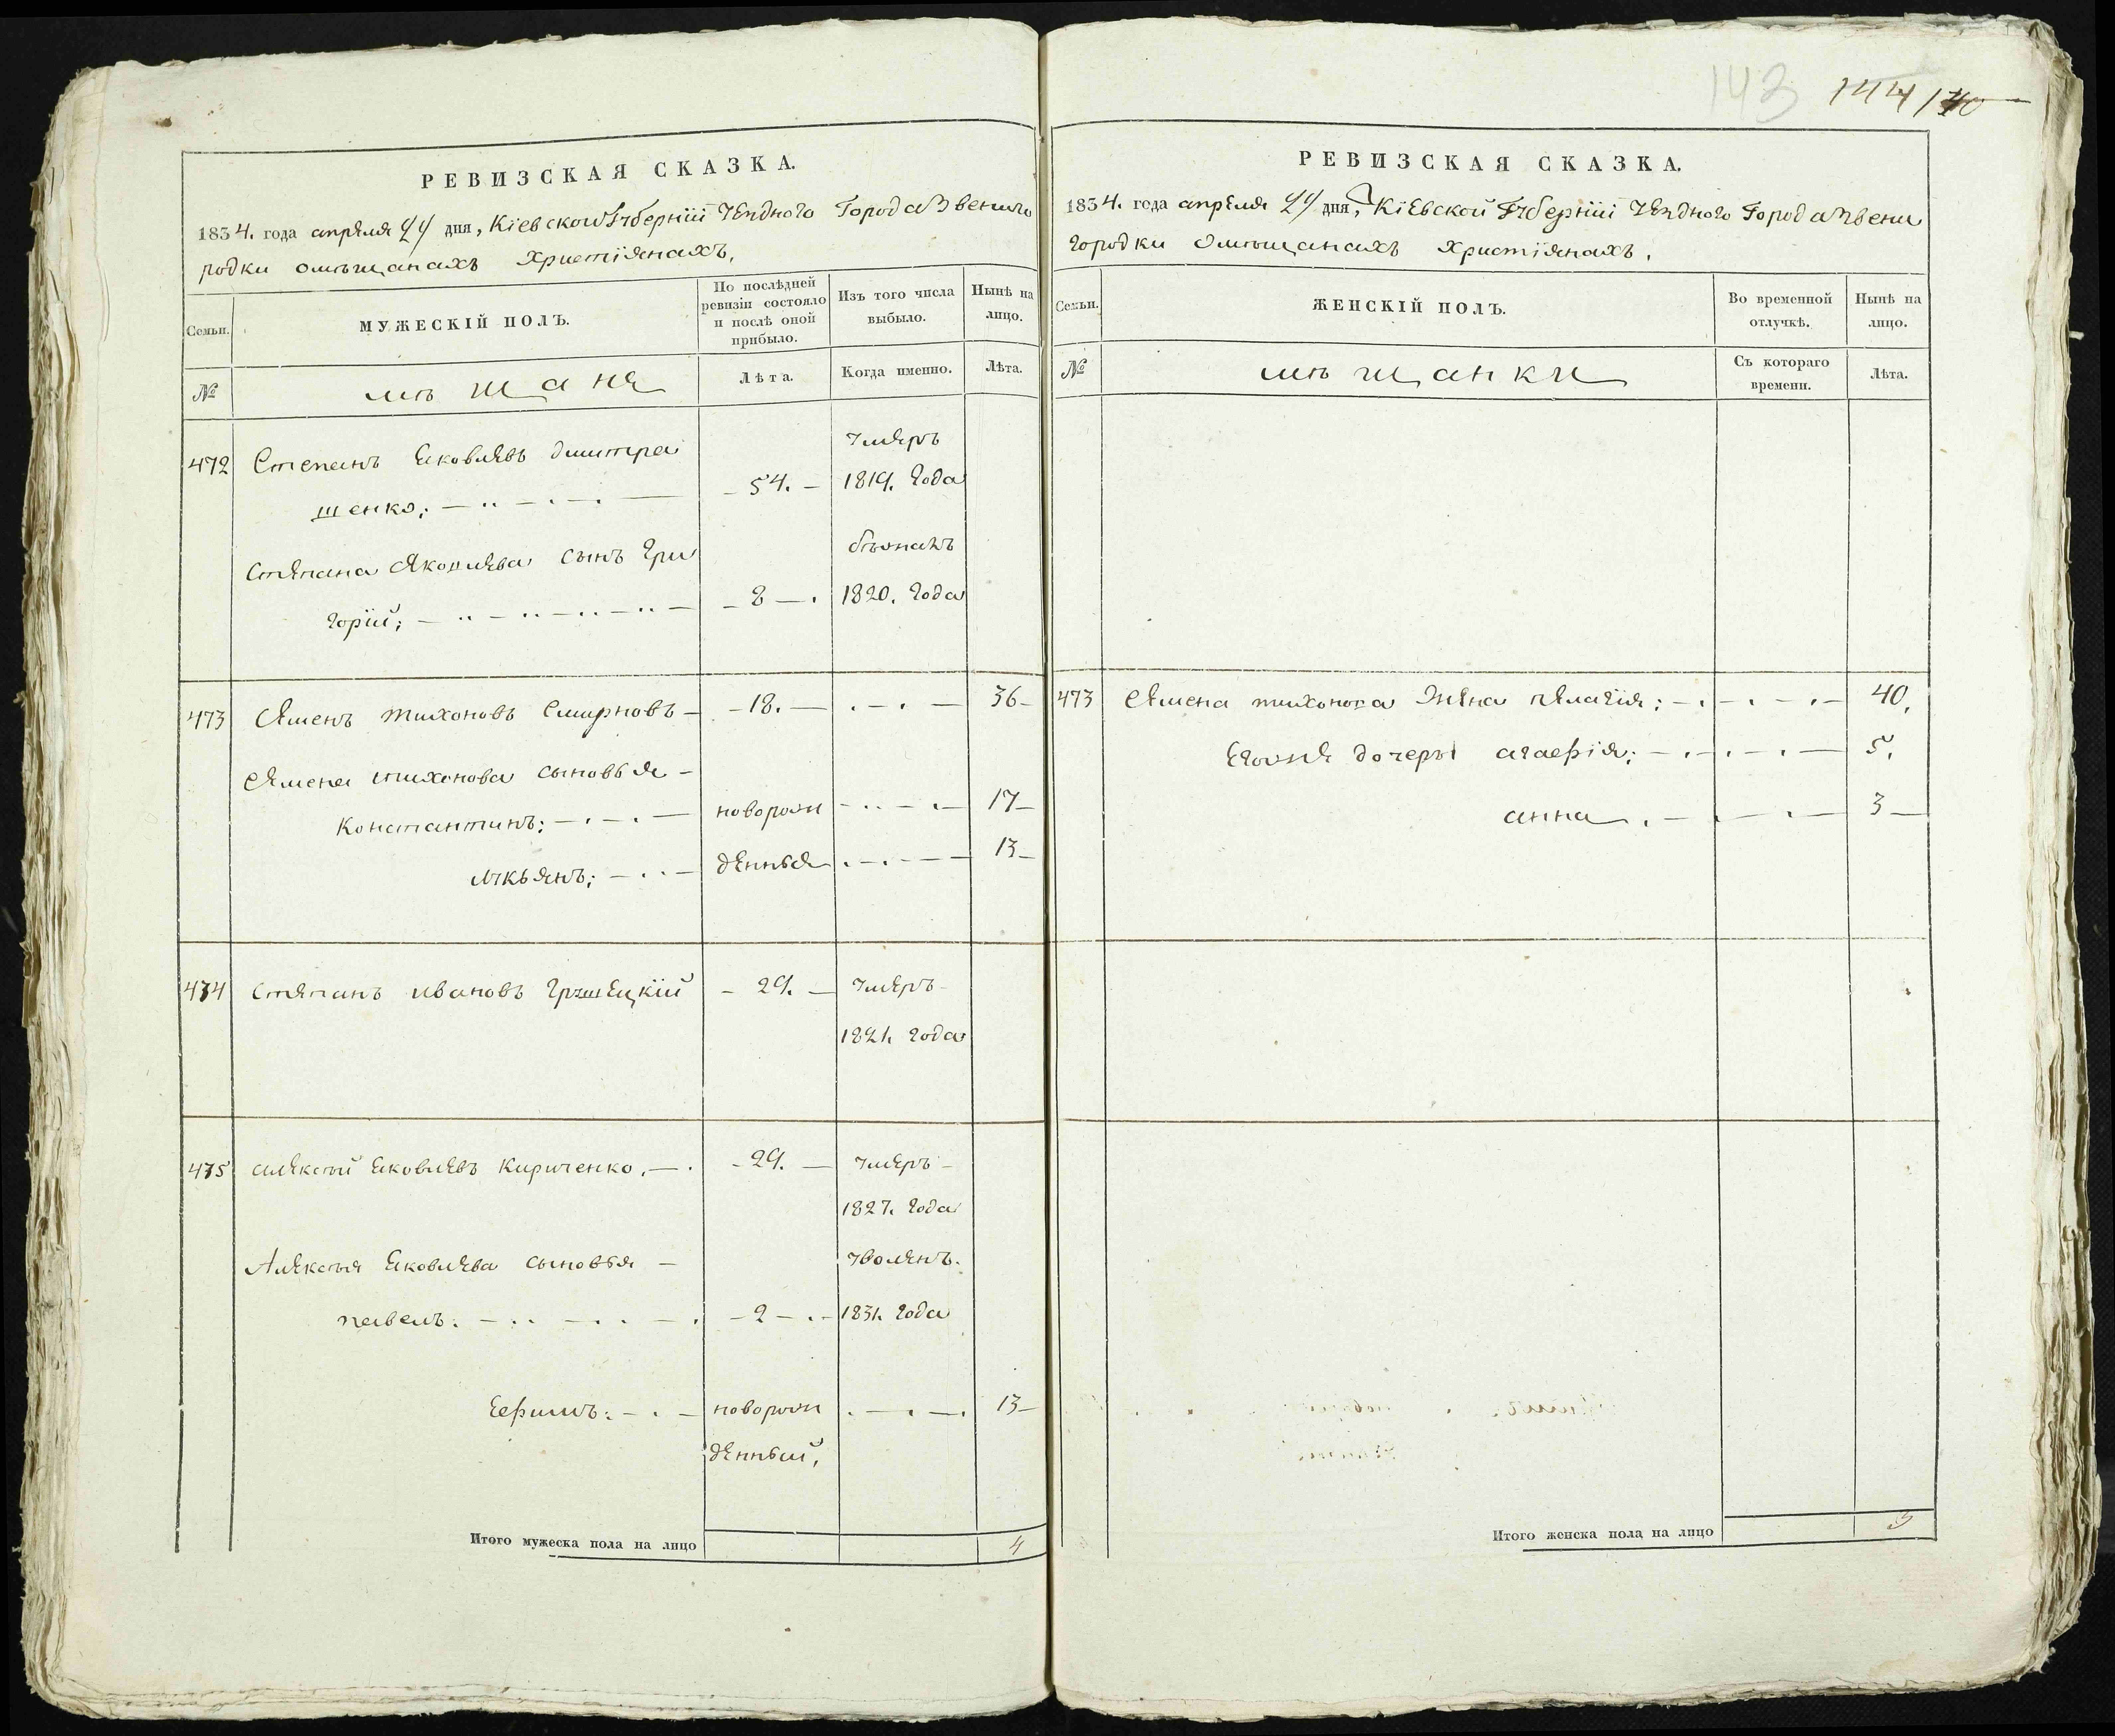 143 144
РЕВИЗСКАЯ СКАЗКА.
1834. года апреля дня, Кіевской Губерніи уезднаго Города Звениго
родки омѣщанахъ Христіянахъ,
Семьи.
МУЖЕСКІЙ ПОЛЪ.
По послѣдней ревизіи состояло и послѣ оной прибыло.
Изъ того числа выбыло.
Нынѣ на лицо.
№
мѣщане
Лѣта.
Когда именно.
Лѣта.
472 Степанъ Яковлевъ дмитра умеръ
шенко; 54. 1819. года
Степана Яковлева сынъ Гри бѣжалъ
горій; 8 1820. года
473 Семенъ тихоновъ Смирновъ 18. 36
Семена тихонова сыновья
Константинъ; наворож 17
лукьянъ; денные 13
474 степанъ ивановъ 29. умеръ
1821. года
475 алексей Яковлевъ Кириченко. 29. умеръ
1827. года
Алексея Яковлева сыновья уволенъ.
павелъ. 2 1831. года
Ефимъ. новорож 13
денный,
Итого мужеска пола на лицо 4
РЕВИЗСКАЯ СКАЗКА.
1834. года апреля дня, Кіевской Губерніи уезднаго Города Звени
городки омѣщанахъ Христіянахъ,
Семьи.
ЖЕНСКІЙ ПОЛЪ.
Во временной отлучкѣ.
Нынѣ на лицо.
№
мѣщанки
Съ котораго времени.
Лѣта.
473 Семена тихонова жена пелагія; 40.
Егоже дочеры агафія; 5.
анна 3
Итого женска пола на лицо 3